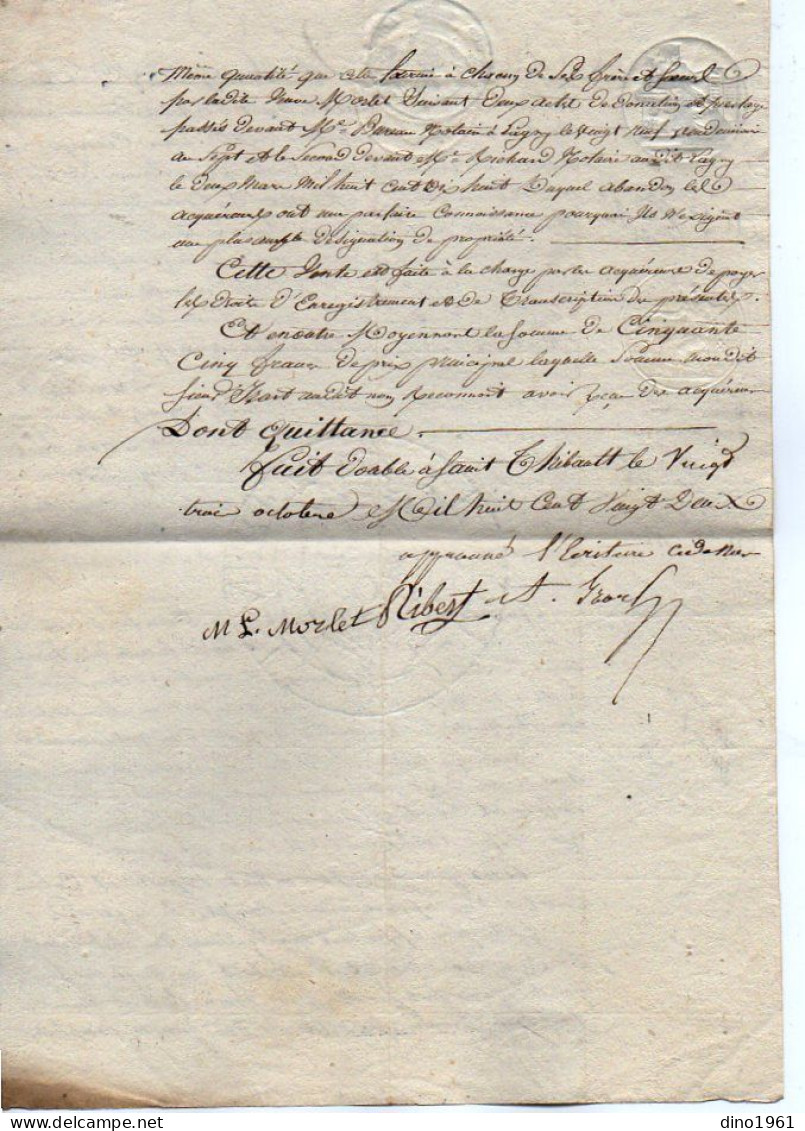 Même quantité que cette fournie à chacun de Ses frère et Sœurs
par ladite Veuve Morlet Suivant deux actes de donation et partage
passés devant Me Bureau Notaire à Lagny le vingt neuf vendemiaire
an Sept et le Second devant Me Richard Notaire audit Lagny
le deux Mars Mil huit Cent dix huit Duquel abandon les
acquéreurs ont une parfaite Connaissance pourquoi ils N'exigent
une plus ample designation de propriété.
Cette Vente est faite à la charge par les acquéreurs de payer
les droits d'Enregistrement et de Transcription des présentes.
Et en outre Moyennant la Somme de Cinquante
Cinq francs de prix principal laquelle Somme mondit
Sieur audit nom Reconnait avoir reçue des acquéreurs
Dont Quittance.
Fait double à Saint Thibault le Vingt
trois octobre Mil huit Cent Vingt Deux
approuvé l'Ecriture ci dessus
M L. Morlet Ribert
dino1961